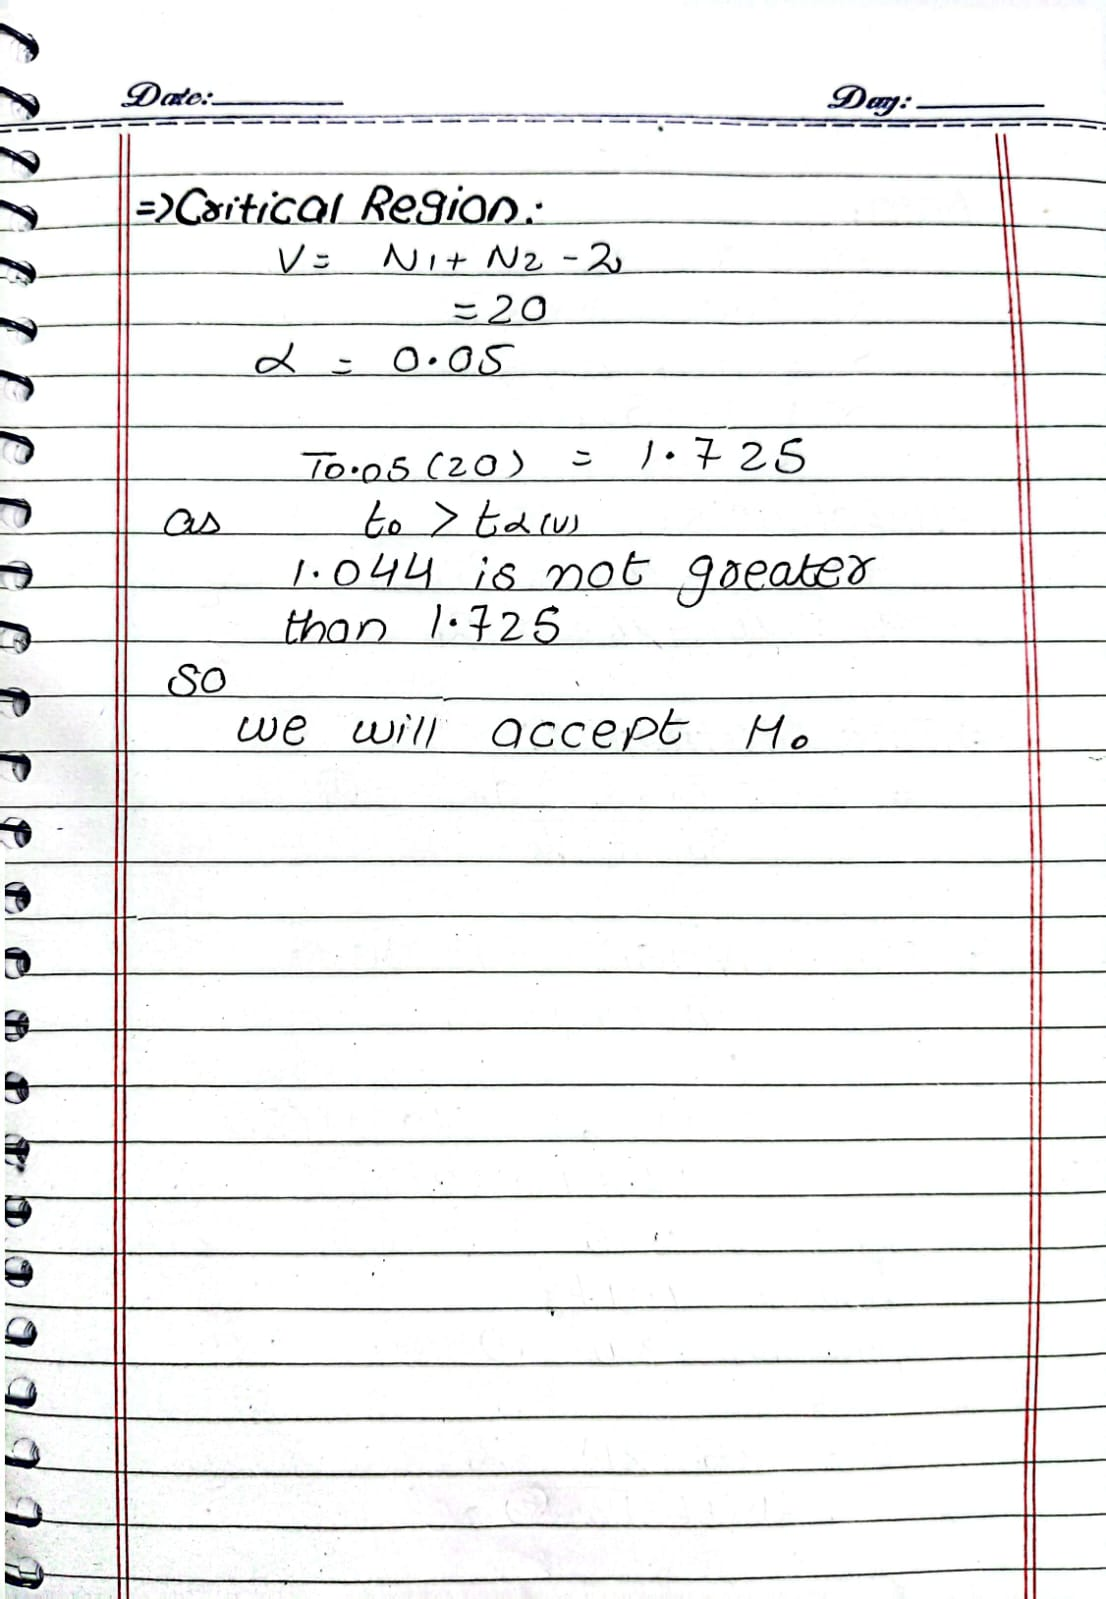 Date: Day:
=> Critical Region:
V = N1 + N2 - 2
= 20
α = 0.05
T0.05 (20) = 1.725
as to > tα(v)
1.044 is not greater
than 1.725
so
we will accept Ho